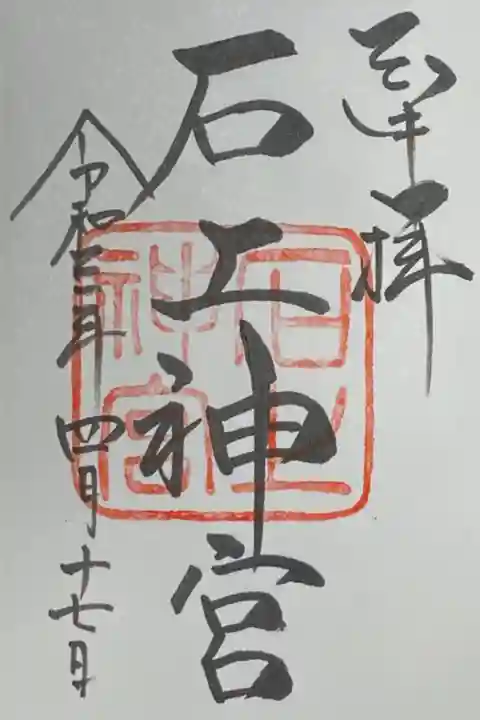 奉拝
石工神宮
令和三年四月十七日
石工神宮